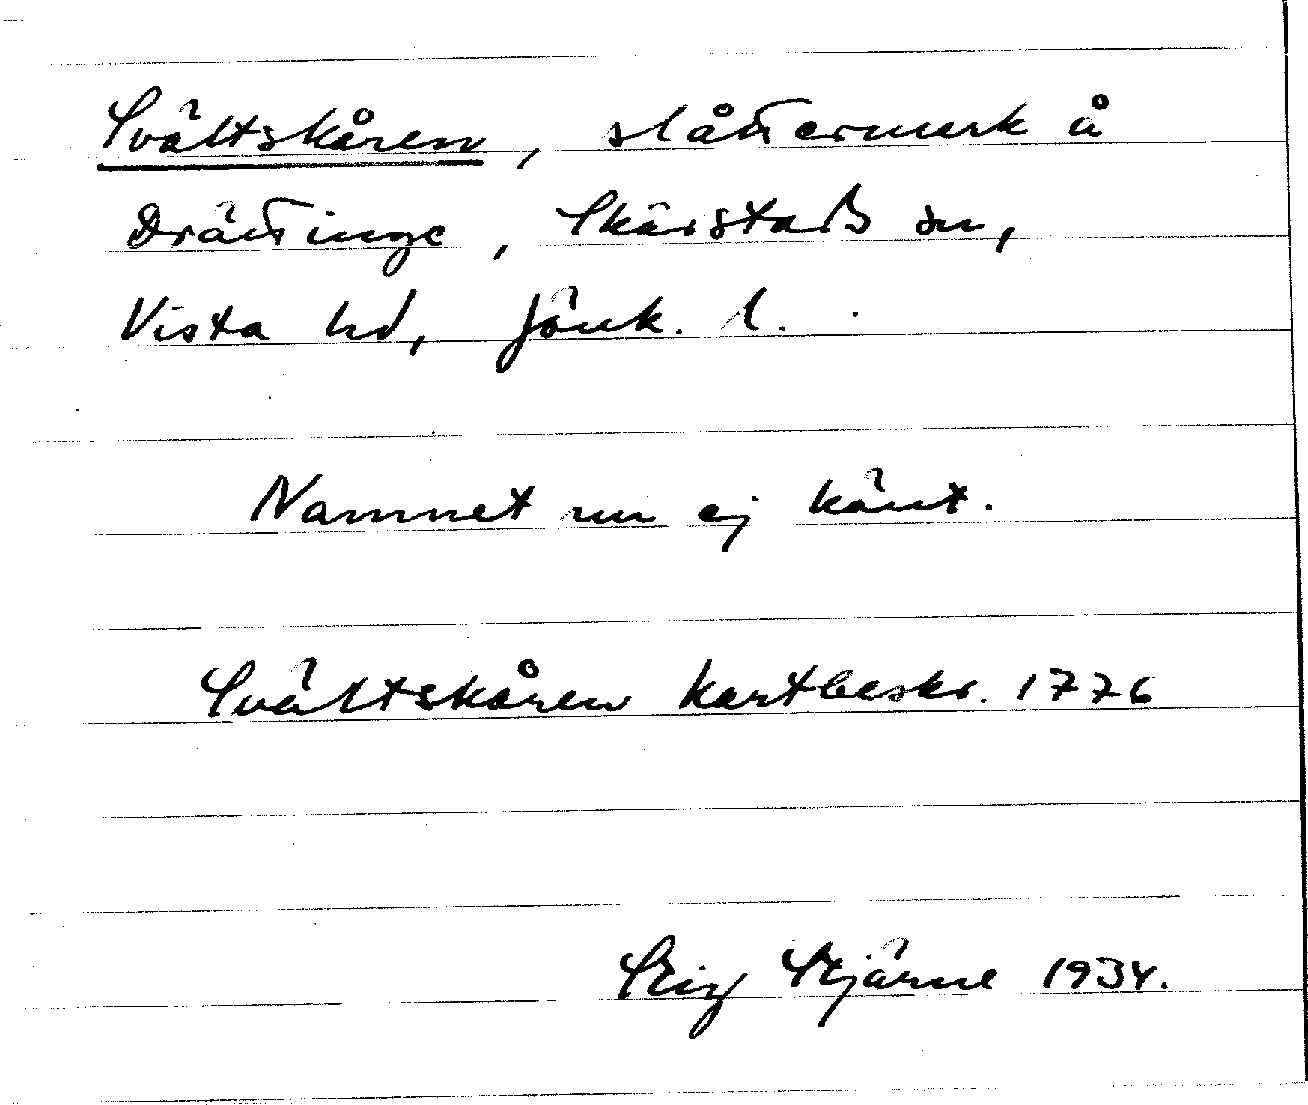 Svältskåren, slåttermark å
Drättinge, Skärstads sn,
Vista hd, Jönk. l.
Namnet nu ej känt.
Svältskåren kartbeskr. 1776
Stig Stjärne 1934.